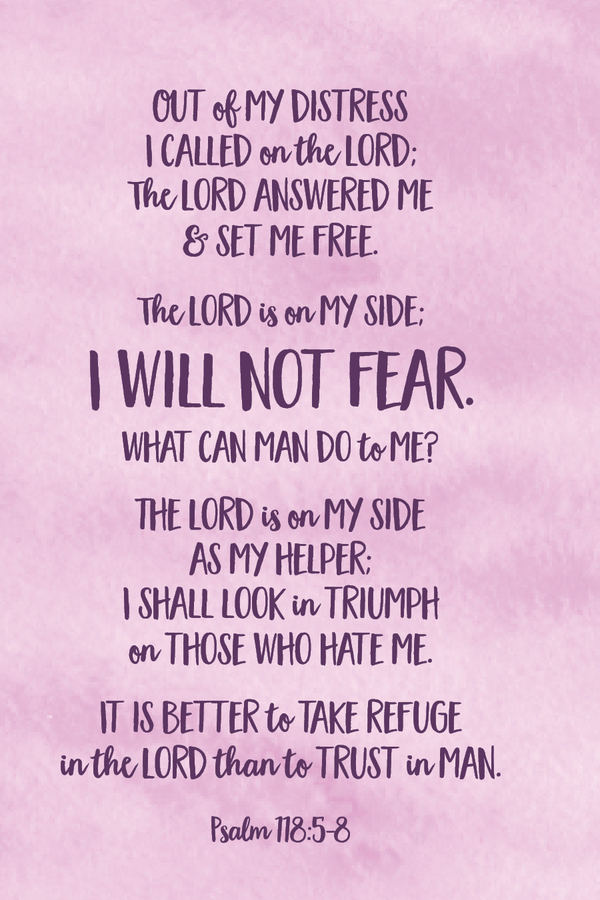 OUT of MY DISTRESS
I CALLED on the LORD;
The LORD ANSWERED ME
& SET ME FREE.
The LORD is on MY SIDE;
I WILL NOT FEAR.
WHAT CAN MAN DO to ME?
THE LORD is on MY SIDE
AS MY HELPER;
I SHALL LOOK in TRIUMPH
on THOSE WHO HATE ME.
IT IS BETTER to TAKE REFUGE
in the LORD than to TRUST in MAN.
Psalm 118:5-8